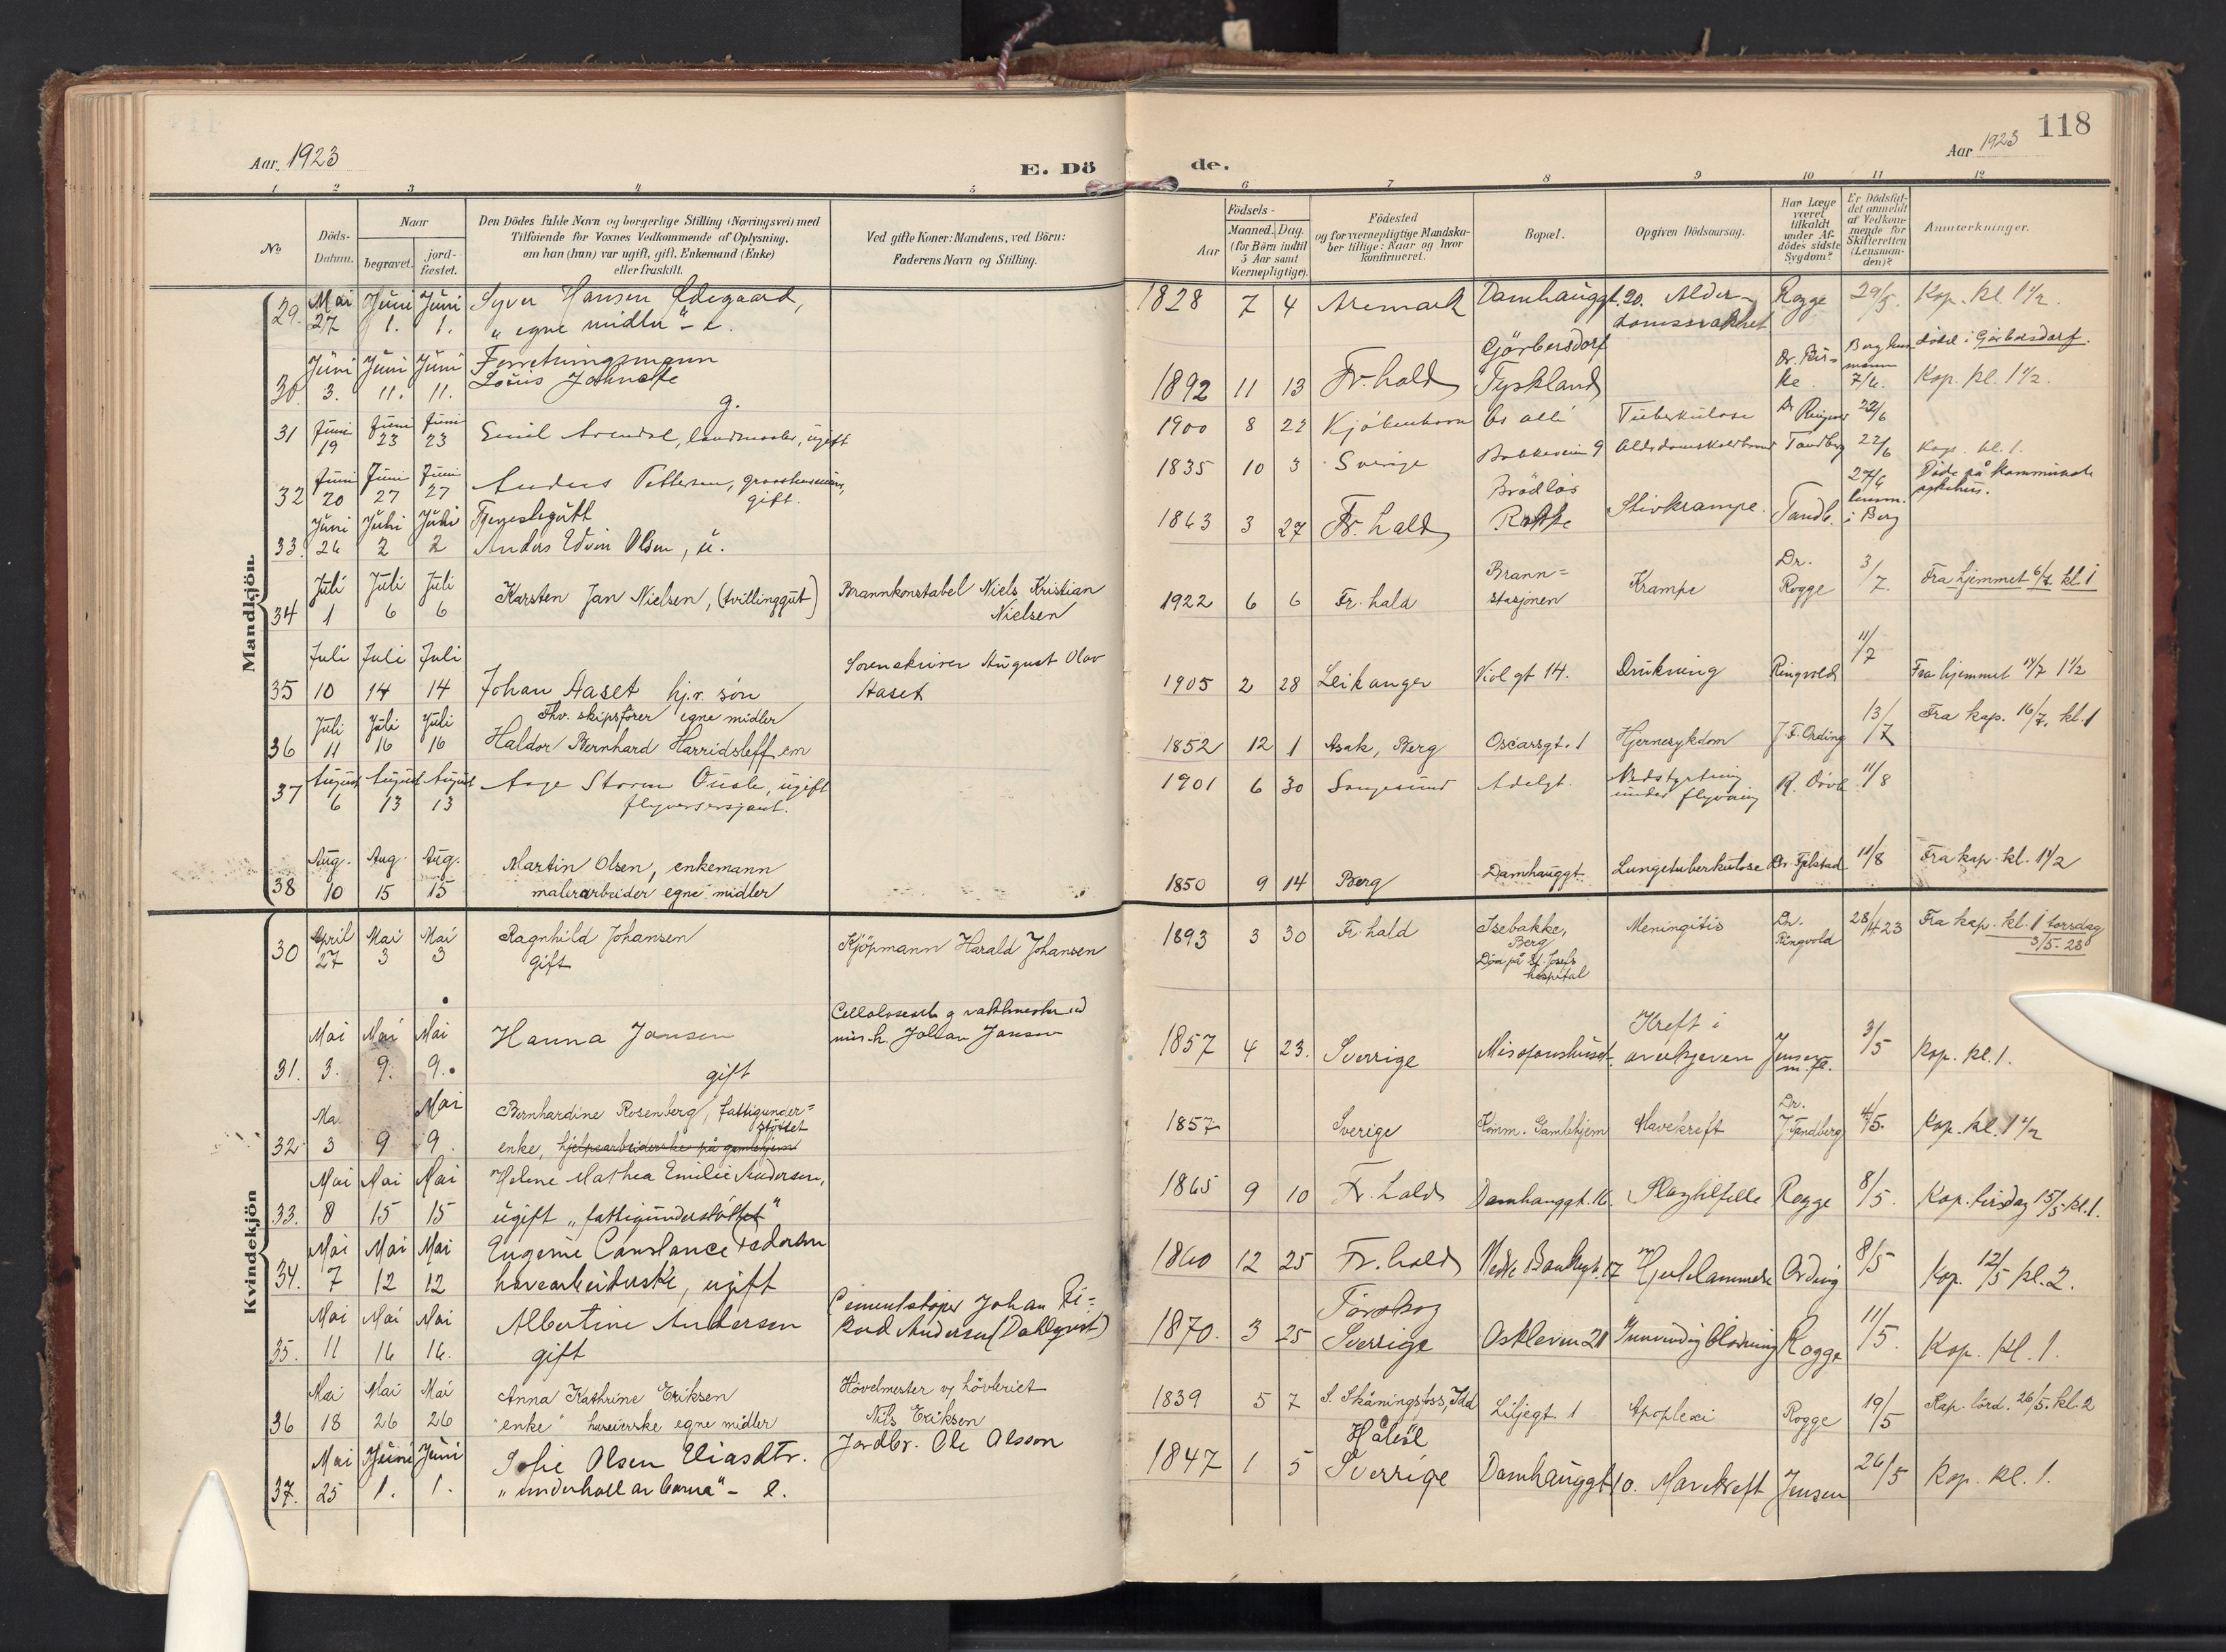 118
Aar 1923
E. Dö
de.
Aar 1923
1 2 3 4 5 6 7 8 9 10 11 12
No
Döds-
Datum.
Naar
begravet.
jord-
fæstet.
Den Dödes fulde Navn og borgerlige Stilling (Næringsvei) med
Tilföiende for Voxnes Vedkommende af Oplysning,
om han (hun) var ugift, gift, Enkemand (Enke)
eller fraskilt.
Ved gifte Koner: Mandens, ved Börn:
Faderens Navn og Stilling.
Födsels-
Aar
Maaned. Dag.
(for Börn indtil
5 Aar samt
Værnepligtige).
Födested
og for værnepligtige Mandska-
ber tillige: Naar og hvor
konfirmeret.
Bopæl.
Opgiven Dödsaarsag.
Har Læge
været
tilkaldt
under Af-
dödes sidste
Sygdom?
Er Dödsfal-
det anmeldt
af Vedkom-
mende for
Skifteretten
(Lensman-
den)?
Anmærkninger.
Mandkjön.
29. Mai Juni Juni Syver Hansen Ødegaard, 1828 7 4 Aremark Damhauggt. 20. Alder- Rogge 29/5. Kap. kl. 1 1/2.
27 1. 1. "egne midler" - e. domssvakhet
Juni Juni Juni Forretningsmann Görbersdorf Död i Görbersdorf.
30. 3. 11. 11. Louis Johnsen 1892 11 13 Fr.hald Tyskland 7/6. Kap. kl. 1 1/2.
g.
31 Juni Juni Juni Emil Arendal, ugift 1900 8 22 Kjöbenhavn Os allé Tuberkulose Dr 22/6
19 23 23
32 Juni Juni Juni Anders Pettersen, 1835 10 3 Sverige 9 Tandberg 22/6 Kap. kl. 1.
20 27 27 gift. Döde på kommunale
sykehus.
Juni Juli Juli Brödlös 27/6
33. 26 2 2 Anders Edvin Olsen, u. 1863 3 27 Fr.hald Stivkrampe. Tandb. lensm. i Berg
34 Juli Juli Juli Karsten Jan Nielsen, (tvillinggut) Brannkonstabel Niels Kristian 1922 6 6 Fr.hald Brann= Krampe Dr. 3/7. Fra hjemmet 6/7. kl. 1
1 6 6 Nielsen stasjonen Rogge
Juli Juli Juli Sorenskriver August Olav 11/7
35 10 14 14 Johan Aaset hj.v. sön Aaset 1905 2 28 Leikanger Violgt 14. Drukning Ringvold Fra hjemmet 14/7 1 1/2
Juli Juli Juli Fhv. skipsförer egne midler
36 11 16 16 Haldor Bernhard Harridsleff em 1852 12 1 Asak, Berg Oscarsgt. 1 Hjernesykdom J. F. Ording 13/7 Fra kap. 16/7. kl. 1
37 August August August Aage Storm ugift 1901 6 30 Adelgt. Nedstyrtning 11/8
6 13 13 flyversersjant. under flyvning
Aug. Aug. Aug. Martin Olsen, enkemann
38 10 15 15 malerarbeider egne midler 1850 9 14 Berg Damhauggt Lungetuberkulose Dr. Fjelstad 11/8 Fra kap. kl. 1 1/2
Kvindekjön
30 April Mai Mai Ragnhild Johansen Kjöpmann Harald Johansen 1893 3 30 Fr.hald Isebakke, Meningitis Dr. 28/4 23 Fra kap. kl. 1 torsdag
27 3 3 gift Berg Ringvold 3/5-23
Död på St. Josefs
hospital
Mai Mai Mai Hanna Jansen Johan Jansen 1857 4 23. Sverrige Kreft i 3/5 Kap. kl. 1.
31. 3. 9. 9. gift Jensen m.fl.
Ma Mai Bernhardine Rosenberg, fattigunder= 1857 Sverige Komm. Gamlehjem Mavekreft Dr. 4/5. Kap. kl. 1 1/2
stöttet J. Tandberg
32 3 9 9. enke, hjelpearbeiderske på gamlehjem
Mai Mai Mai Helene Mathea Emilie Andersen, 1865 9 10 Fr.hald Damhauggt. 16. Slagtilfelle Rogge 8/5. Kap. tirsdag 15/5. kl. 1.
33. 8 15 15 ugift "fattigunderstöttet"
Mai Mai Mai Eugenie Constance Pedersen 1860 12 25 Fr.hald Hjertelammelse Ording 8/5 Kap. 12/5 kl. 2.
34. 7 12 12 havearbeiderske, ugift
Mai Mai Mai Albertine Andersen Cementstöper Johan Ri-
kard Andersen (Dahlqvist) 1870. 3 25 Sverrige 21 Innvendig blödning Rogge 11/5. Kap. kl. 1.
35. 11 16 16. gift
Mai Mai Mai Anna Kathrine Eriksen Hövelmester v/ hövleriet 1839 5 7 S. Skåningsfoss, Idd Liljegt 1 Apoplexi Rogge 19/5 Kap. lörd. 26/5. kl. 2
36 18 26 26 "enke" huseierske egne midler Nils Eriksen
Mai Juni Juni Sofie Olsen Eliasdtr. Jordbr. Ole Olsson 1847 1 5 Håböl Damhauggt 10. Mavekreft Jensen 26/5 Kap. kl. 1.
37. 25 1. 1. "underhold av barna" - e. Sverrige